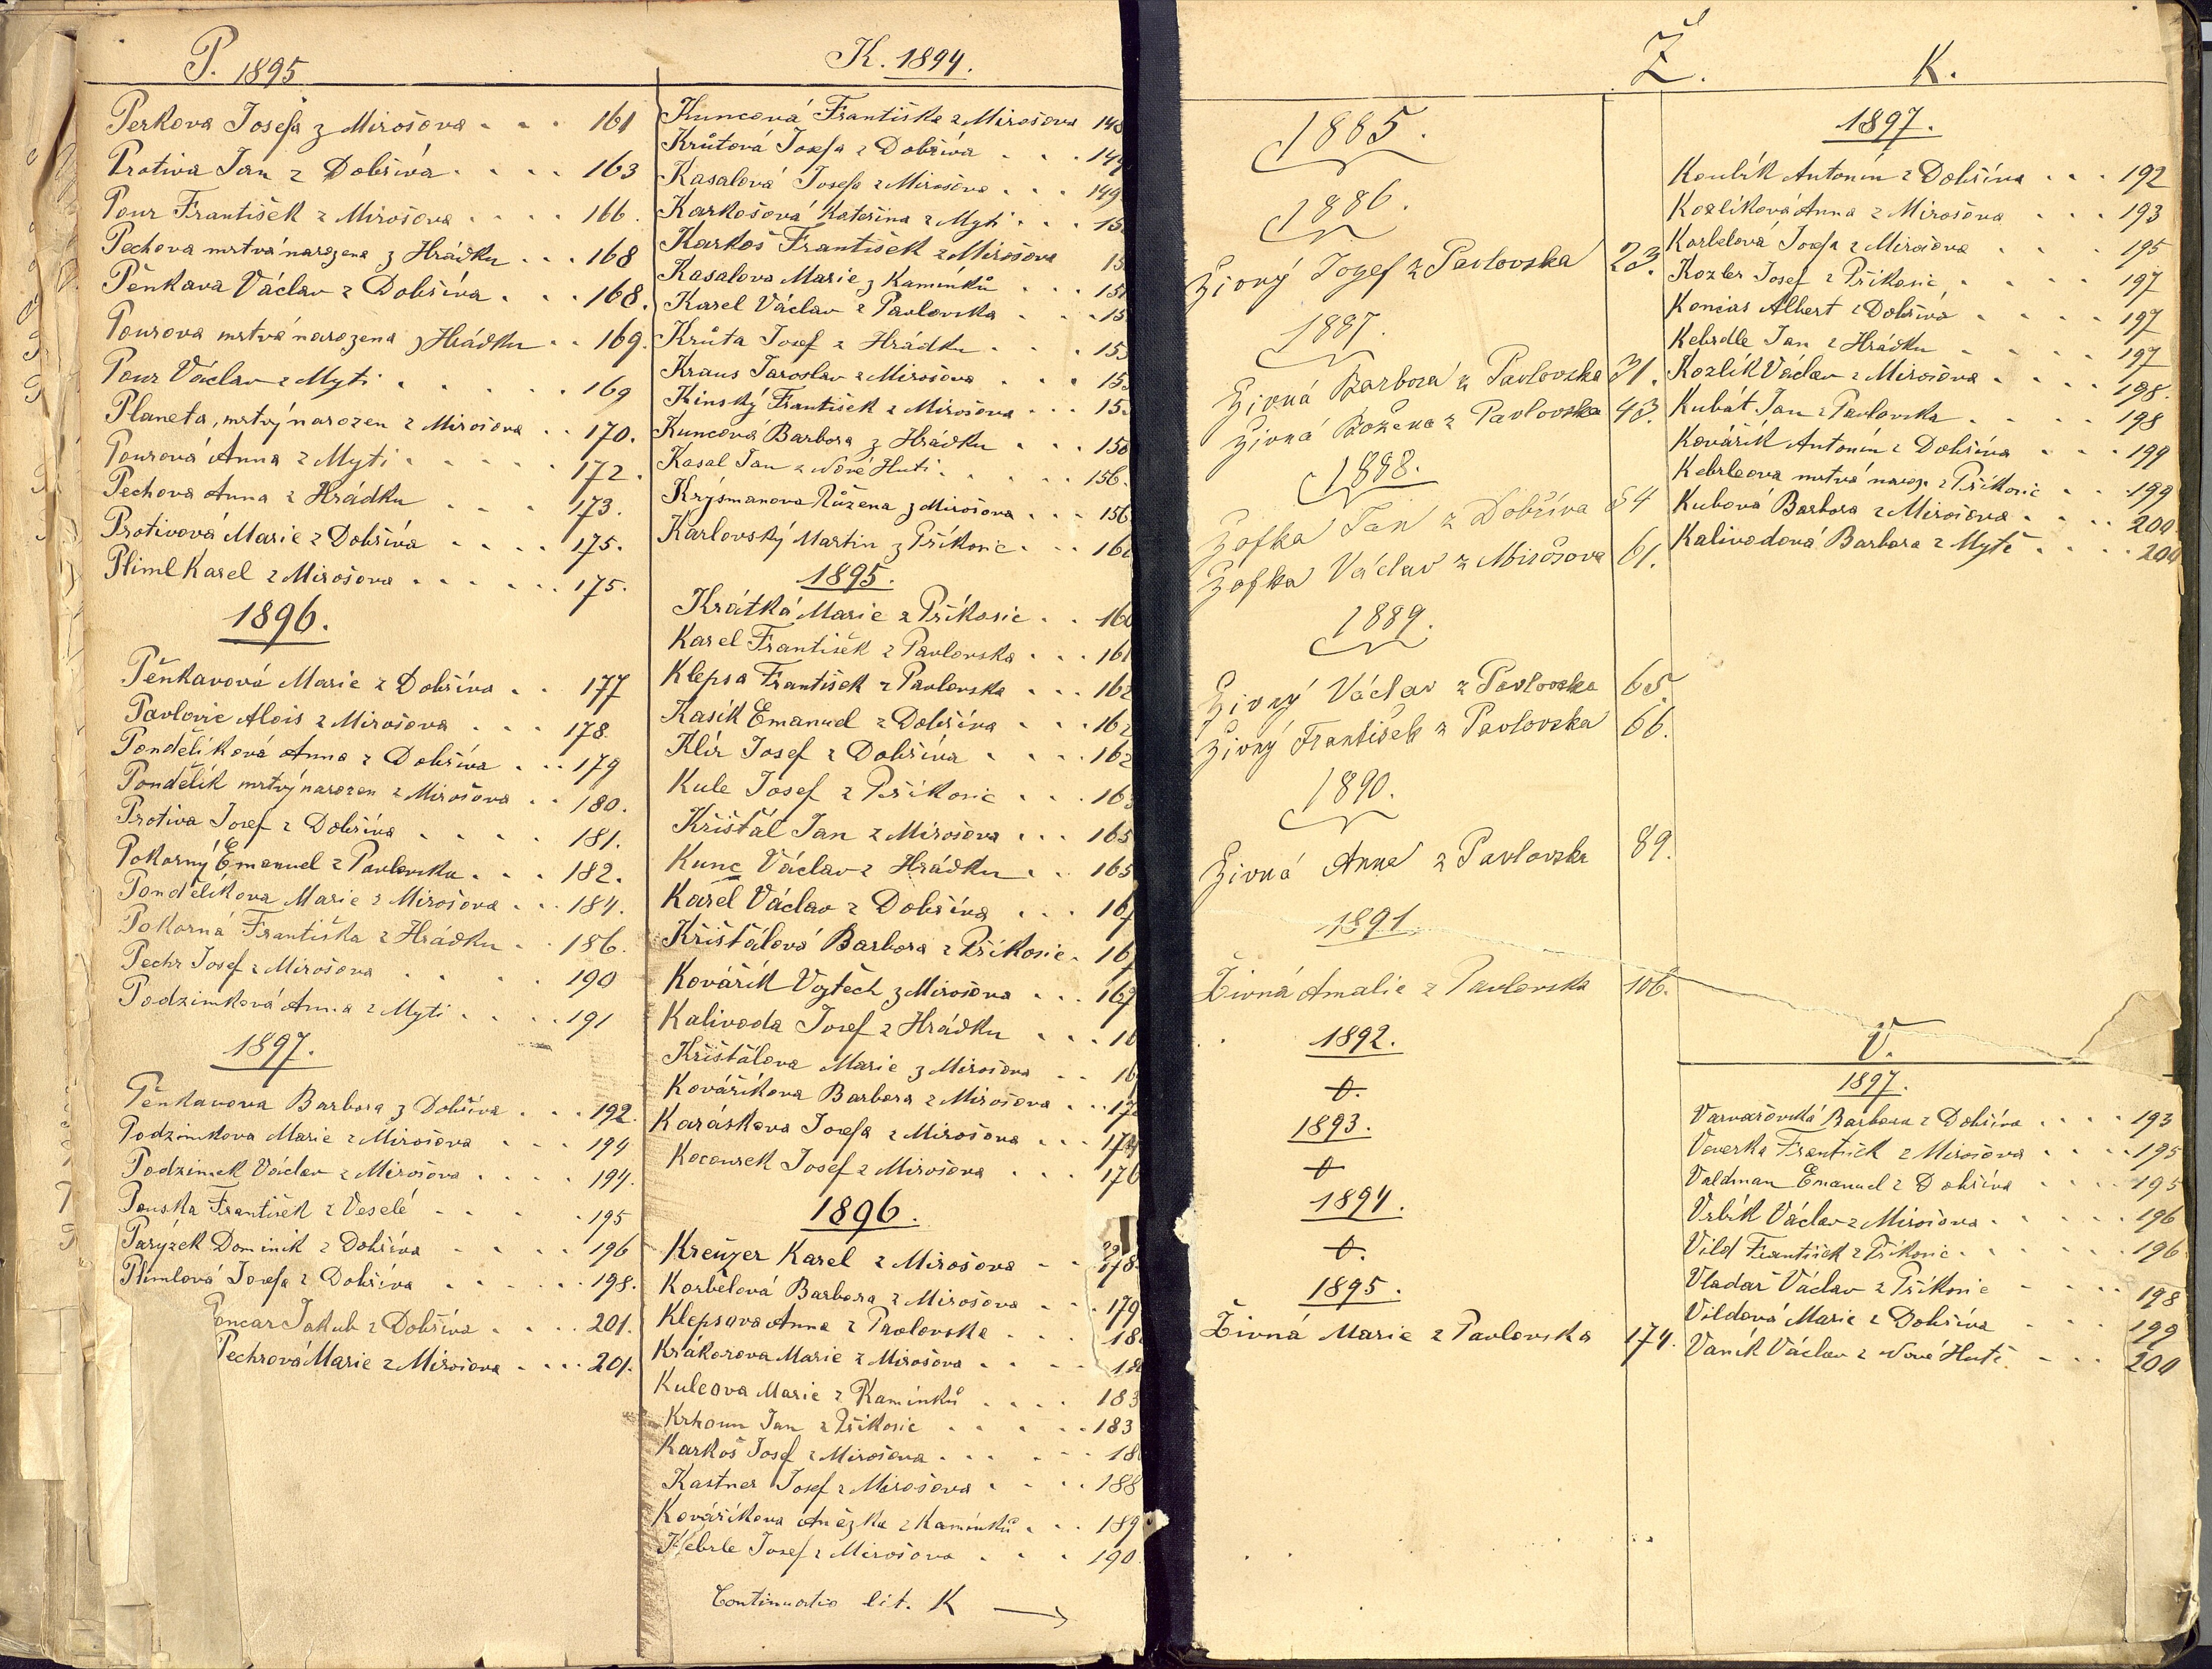 P. 1895
Perkova Josefa z Mirošova - - - 161
Protiva Jan z Dobříva - - - - 163
Pour František z Mirošova - - - - 166.
Pechova mrtvá narozena z Hrádku - - - 168
Pěnkava Václav z Dobříva - - - 168.
Pourova mrtvá narozena z Hrádku - - 169.
Pour Václav z Myti - - - - - 169
Planeta, mrtvý narozen z Mirošova - - 170.
Pourová Anna z Myti - - - - - 172.
Pechova Anna z Hrádku - - - 173.
Protivová Marie z Dobříva - - - - 175.
Pliml Karel z Mirošova - - - - - - 175.
1896.
Pěnkavová Marie z Dobříva - - 177
Pavlovic Alois z Mirošova - - - 178.
Pondělíková Anna z Dobříva - - - 179
Pondělík mrtvý narozen z Mirošova - - 180.
Protiva Josef z Dobříva - - - - 181.
Pokorný Emanuel z Pavlovska - - - 182.
Pondělíkova Marie z Mirošova - - - 184.
Pokorná Františka z Hrádku - - 186.
Pechr Josef z Mirošova - - - - 190
Podzimková Anna z Myti - - - - 191
1897.
Pěnkavova Barbora z Dobříva - - - 192.
Podzimkova Marie z Mirošova - - - 194
Podzimek Václav z Mirošova - - - - 194.
Pouska František z Veselé - - - - 195
Parýzek Dominik z Dobříva - - - - 196
Plimlová Josefa z Dobříva - - - - - 198.
oncar Jakub z Dobříva - - - - 201.
Pechrová Marie z Mirošova - - - - 201.
K. 1894.
Kuncová Františka z Mirošova 148
Krůtová Josefa z Dobříva - - - 149
Kasalová Josefa z Mirošova - - - 149
Karkošová Kateřina z Myti - - - 15
Karkoš František z Mirošova 15
Kasalova Marie z Kamínků - - - 15
Karel Václav z Pavlovska - - - 15
Krůta Josef z Hrádku - - - 15
Kraus Jaroslav z Mirošova - - - 15
Kinský František z Mirošova - - - 15
Kuncová Barbora z Hrádku - - - 156
Kasal Jan z Nové Huti - - - - - 156.
Krýsmanova Růžena z Mirošova - - - 156
Karlovský Martin z Příkosic - - - 160
1895.
Krátká Marie z Příkosic - - 160
Karel František z Pavlovska - - - 161
Klepsa František z Pavlovska - - - 162
Kasík Emanuel z Dobříva - - - 162
Klír Josef z Dobříva - - - - 162
Kule Josef z Příkosic - - - 163
Křišťál Jan z Mirošova - - - 165
Kunc Václav z Hrádku - - - 165
Karel Václav z Dobříva - - - 167
Křišťálová Barbora z Příkosic - 16
Kovářík Vojtěch z Mirošova - - - 169
Kalivoda Josef z Hrádku - - - 16
Křišťálova Marie z Mirošova - - 16
Kováříkova Barbora z Mirošova - - - 17
Karáskova Josefa z Mirošova - - - 174
Kocourek Josef z Mirošova - - - 176
1896.
Kreüzer Karel z Mirošova - - 178
Korbelová Barbora z Mirošova - - - 179
Klepsova Anna z Pavlovska - - - 18
Krákorova Marie z Mirošova - - - - 18
Kuleova Marie z Kamínků - - - - 183
Krhoun Jan z Příkosic - - - - - 183
Karkoš Josef z Mirošova - - - - - 18
Kastner Josef z Mirošova - - - - 188
Kováříkova Anežka z Kamínků - - - 189
Kebrle Josef z Mirošova - - - 190
Continuatio lit. K →
Ž.
1885.
1886.
Živný Jozef z Pavlovska 23.
1887.
Živná Barbora z Pavlovska 31.
Živná Božena z Pavlovska 43.
1888.
Žofka Jan z Dobříva 54
Žofka Václav z Mirošova 61.
1889.
Živný Václav z Pavlovska 65.
Živný František z Pavlovska 66.
1890.
Živná Anna z Pavlovska 89.
1891.
Živná Amalie z Pavlovska 106.
1892.
0.
1893.
0
1894.
0.
1895.
Živná Marie z Pavlovska 174.
K.
1897.
Koubík Antonín z Dobříva - - - 192
Kozlíková Anna z Mirošova - - - 193
Korbelová Josefa z Mirošova - - 195
Kozler Josef z Příkosic - - - - 197
Koncar Albert z Dobřívá - - - - 197
Kebrdle Jan z Hrádku - - - - 197
Kozlík Václav z Mirošova - - - - 198.
Kubát Jan z Pavlovska - - - - 198
Kovářík Antonín z Dobříva - - - 199
Kebrleova mrtvá naroz. z Příkosic - - - 199
Kubová Barbora z Mirošova - - - - 200
Kalivodová Barbora z Mytě - - - - 200
V.
1897.
Varvařovská Barbora z Dobříva - - - - 193
Veverka František z Mirošova - - - - 195
Valdman Emanuel z Dobříva - - - - 195
Vrbík Václav z Mirošova - - - - - 196
Vild František z Příkosic - - - - - - 196
Vladař Václav z Příkosic - - - - 198
Vildová Marie z Dobříva - - - 199
Vaník Václav z Nové Hutě - - - 200